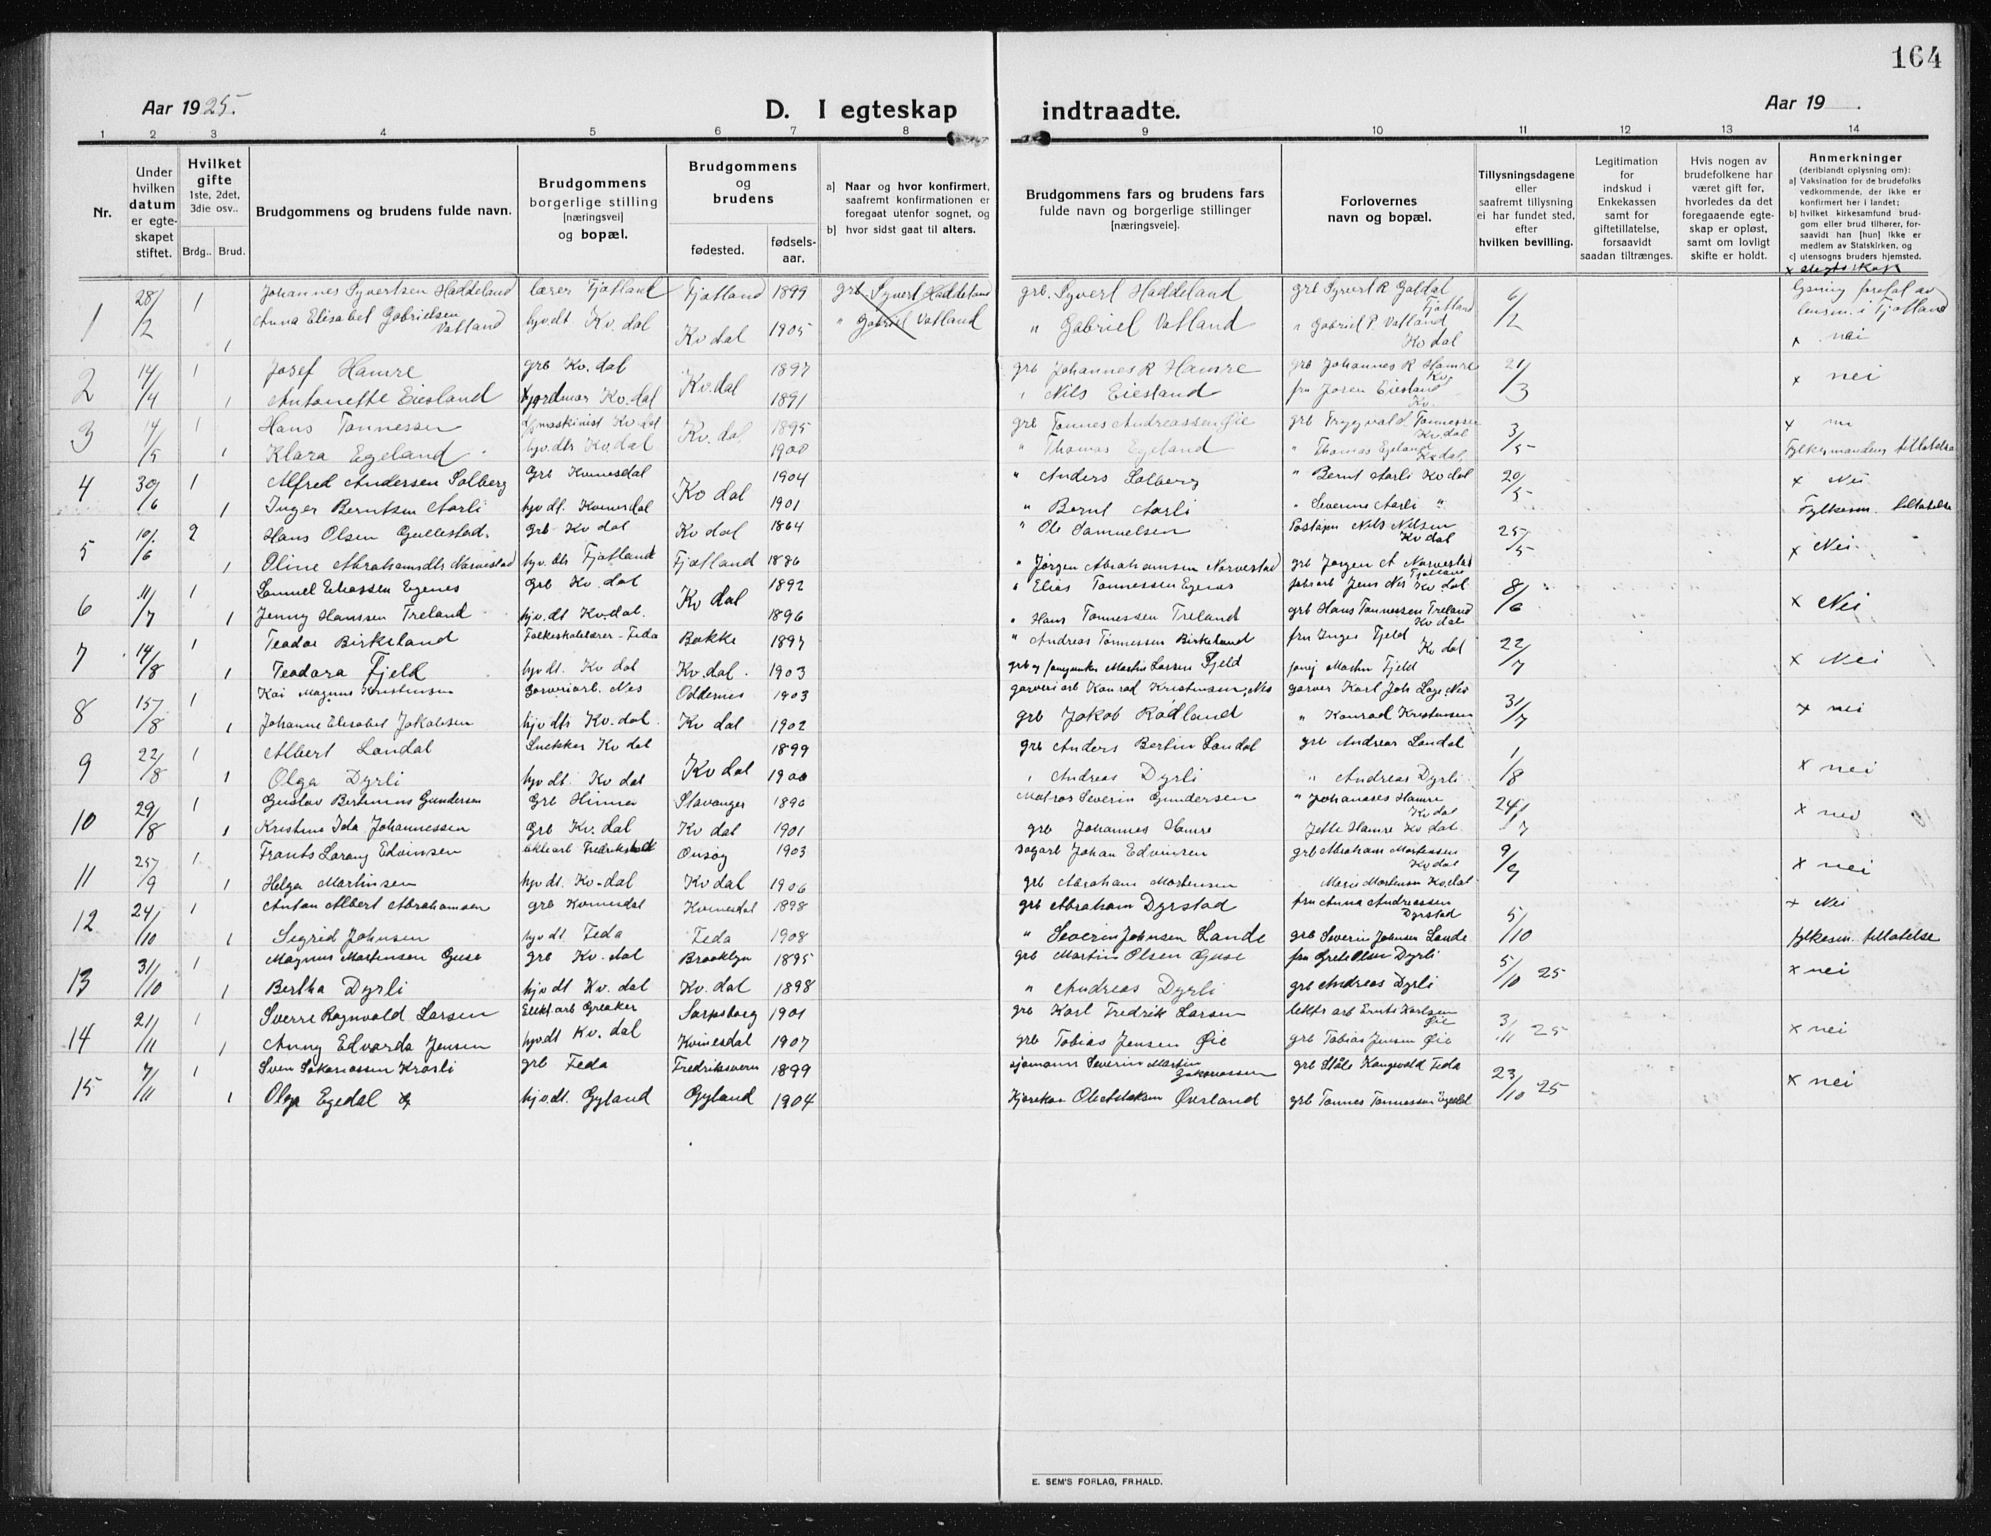 164
Aar 1925.
D. I egteskap
indtraadte.
Aar 19 .
1 2 3 4 5 6 7 8 9 10 11 12 13 14
Nr.
Under hvilken datum er egteskapet stiftet.
Hvilket gifte
1ste, 2det, 3die osv..
Brdg.. Brud.
Brudgommens og brudens fulde navn.
Brudgommens borgerlige stilling [næringsvei] og bopæl.
Brudgommens og brudens
fødested.
fødselsaar.
a) Naar og hvor konfirmert, saafremt konfirmationen er foregaat utenfor sognet, og
b) hvor sidst gaat til alters.
Brudgommens fars og brudens fars fulde navn og borgerlige stillinger [næringsveie].
Forlovernes navn og bopæl.
Tillysningsdagene eller saafremt tillysning ei har fundet sted, efter hvilken bevilling.
Legitimation for indskud i Enkekassen samt for giftetillatelse, forsaavidt saadan tiltrænges.
Hvis nogen av brudefolkene har været gift før, hvorledes da det foregaaende egteskap er opløst, samt om lovligt skifte er holdt.
Anmerkninger
(deriblandt oplysning om):
a) Vaksination for de brudefolks vedkommende, der ikke er konfirmert her i landet;
b) hvilket kirkesamfund brudgom eller brud tilhører, forsaavidt han [hun] ikke er medlem av Statskirken, og
c) utensogns bruders hjemsted.
x slegtsskap
1 28/2 1 Johannes Syvertsen Haddeland lærer Fjotland Fjotland 1899 grb Syvert Haddeland grb. Syvert Haddeland grb Syvert R Fjotland 6/2 lysning foretat av lensm. i Fjotland
1 Anna Elisabet Gabrielsen Vatland hjvdt Kv. dal Kv dal 1905 " Gabriel Vatland " Gabriel Vatland " Gabriel P. Vatland Kv dal x nei
2 14/4 1 Josef Hamre grb Kv. dal Kv. dal 1897 grb Johannes R Hamre grb Johannes R Hamre Kv. 21/3 x nei
1 Antonette Eiesland Kv. dal 1891 " Nils Eiesland fru Joren Eiesland Kv.
3 14/5 1 Hans Tønnessen maskinist Kv dal Kv. dal 1895 grb Tønnes Andreassen Øie grb Trygvald Tønnessen Kv dal 3/5 x nei
1 Klara Egeland hjv. dtr Kv. dal 1900 " Thomas Egeland " Thomas Egeland Kv dal Fylkesmandens tillatelse
4 30/6 1 Alfred Andersen Solberg Grb Kvinesdal Kv dal 1904 " Anders Solberg " Bernt Aarli Kv dal 20/5 x Nei
1 Inger Berntsen Aarli hjv dt. Kvinesdal 1901 " Bernt Aarli " Severine Aarli " Fylkesm. tillatelse
5 10/6 2 Hans Olsen Gullestad. Grb Kv dal Kv dal 1864 " Ole Samuelsen Postaapn Nils Nilsen Kv dal 25/5 x Nei
1 Oline Abrahamsdtr Narvestad hjv. dtr Fjotland Fjotland 1886 " Jørgen Abrahamsen Narvestad grb Jørgen A Narvestad Fjotland
6 11/7 1 Samuel Eliassen Egenes Grb Kv. dal Kv dal 1892 " Elias Tønnessen Egenes Jens Nes Kv dal 8/6 x Nei
1 Jenny Hanssen Treland hjv. dt Kv. dal. 1896 " Hans Tønnessen Treland grb Hans Tønnessen Treland Kv dal
7 14/8 1 Teodor Birkeland Folkeskolelærer - Feda Bakke 1897 " Andreas Tønnessen Birkeland fru Inger Fjeld Kv dal 22/7 x Nei
1 Teodora Fjeld hjv dt. Kv dal Kv. dal. 1903 Martin Larsen Fjeld Martin Fjeld
8 15/8 1 Kai Magnus Kristensen Garveriarb. Nes Oddernes 1903 garveriarb Konrad Kristensen, Nes garver Karl Joh Nes 31/7 x nei
1 Johanne Elisabet Jakobsen hjv dtr Kv. dal. Kv dal 1902 grb Jakob Rødland " Konrad Kristensen
9 22/8 1 Albert Londal Snekker Kv dal Kv dal 1899 grb Anders Bertin Londal grb Andreas Londal 1/8 x nei
1 Olga Dyrli hjv dt. Kv dal 1900 " Andreas Dyrli " Andreas Dyrli
10 29/8 1 Gustav Gundersen Grb Hinna Stavanger 1890 Matros Severin Gundersen " Johannes Hamre Kv dal 24/7 x nei
1 Kristine Ida Johannessen Grb Kv. dal Kv dal 1901 grb Johannes Hamre Jette Hamre Kv dal
11 25/9 1 Frants Edvinsen Onsøy 1903 sagarb Johan Edvinsen grb Abraham Mortensen Kv dal 9/9 x nei
1 Helga Martinsen hjv dt. Kv. dal Kv dal 1906 grb Abraham Mortensen Marie Mortensen Kv. dal
12 24/10 1 Anton Albert Abrahamsen grb Kvinesdal Kvinesdal 1898 grb Abraham Dyrstad fru Anna Andreassen Dyrstad 5/10 x Nei
1 Sigrid Johnsen hjv dt. Feda Feda 1908 " Severin Johnsen Lande grb Severin Johnsen Lande fylkesm. tillatelse
13 31/10 1 Magnus Martensen Guse grb Kv. dal Brooklyn 1895 grb Martin Olsen Guse fru Grete Olsen Dyrli 5/10 25 x nei
1 Bertha Dyrli hjv dt Kv. dal Kv. dal 1898 " Andreas Dyrli grb Andreas Dyrli
14 21/11 1 Sverre Ragnvald Larsen Elekt. arb Greaker Sarpsborg 1901 grb Karl Fredrik Larsen arb Karlsen Øie 3/11 25 x nei
1 Anny Edvarda Jensen hjv dt Kv. dal Kvinesdal 1907 grb Tobias Jensen Øie grb Tobias Jensen Øie
15 7/11 1 Sven Sakariassen Kråsli grb Feda Fredriksvern 1899 sjømann Severin Martin Sakariassen grb Ståle Kongevold Feda 23/10 25 x nei
1 Olga Egedal hjv dt. Gyland Gyland 1904 Øverland grb Tønnes Tønnessen Egedal
E. SEM'S FORLAG, FR.HALD.